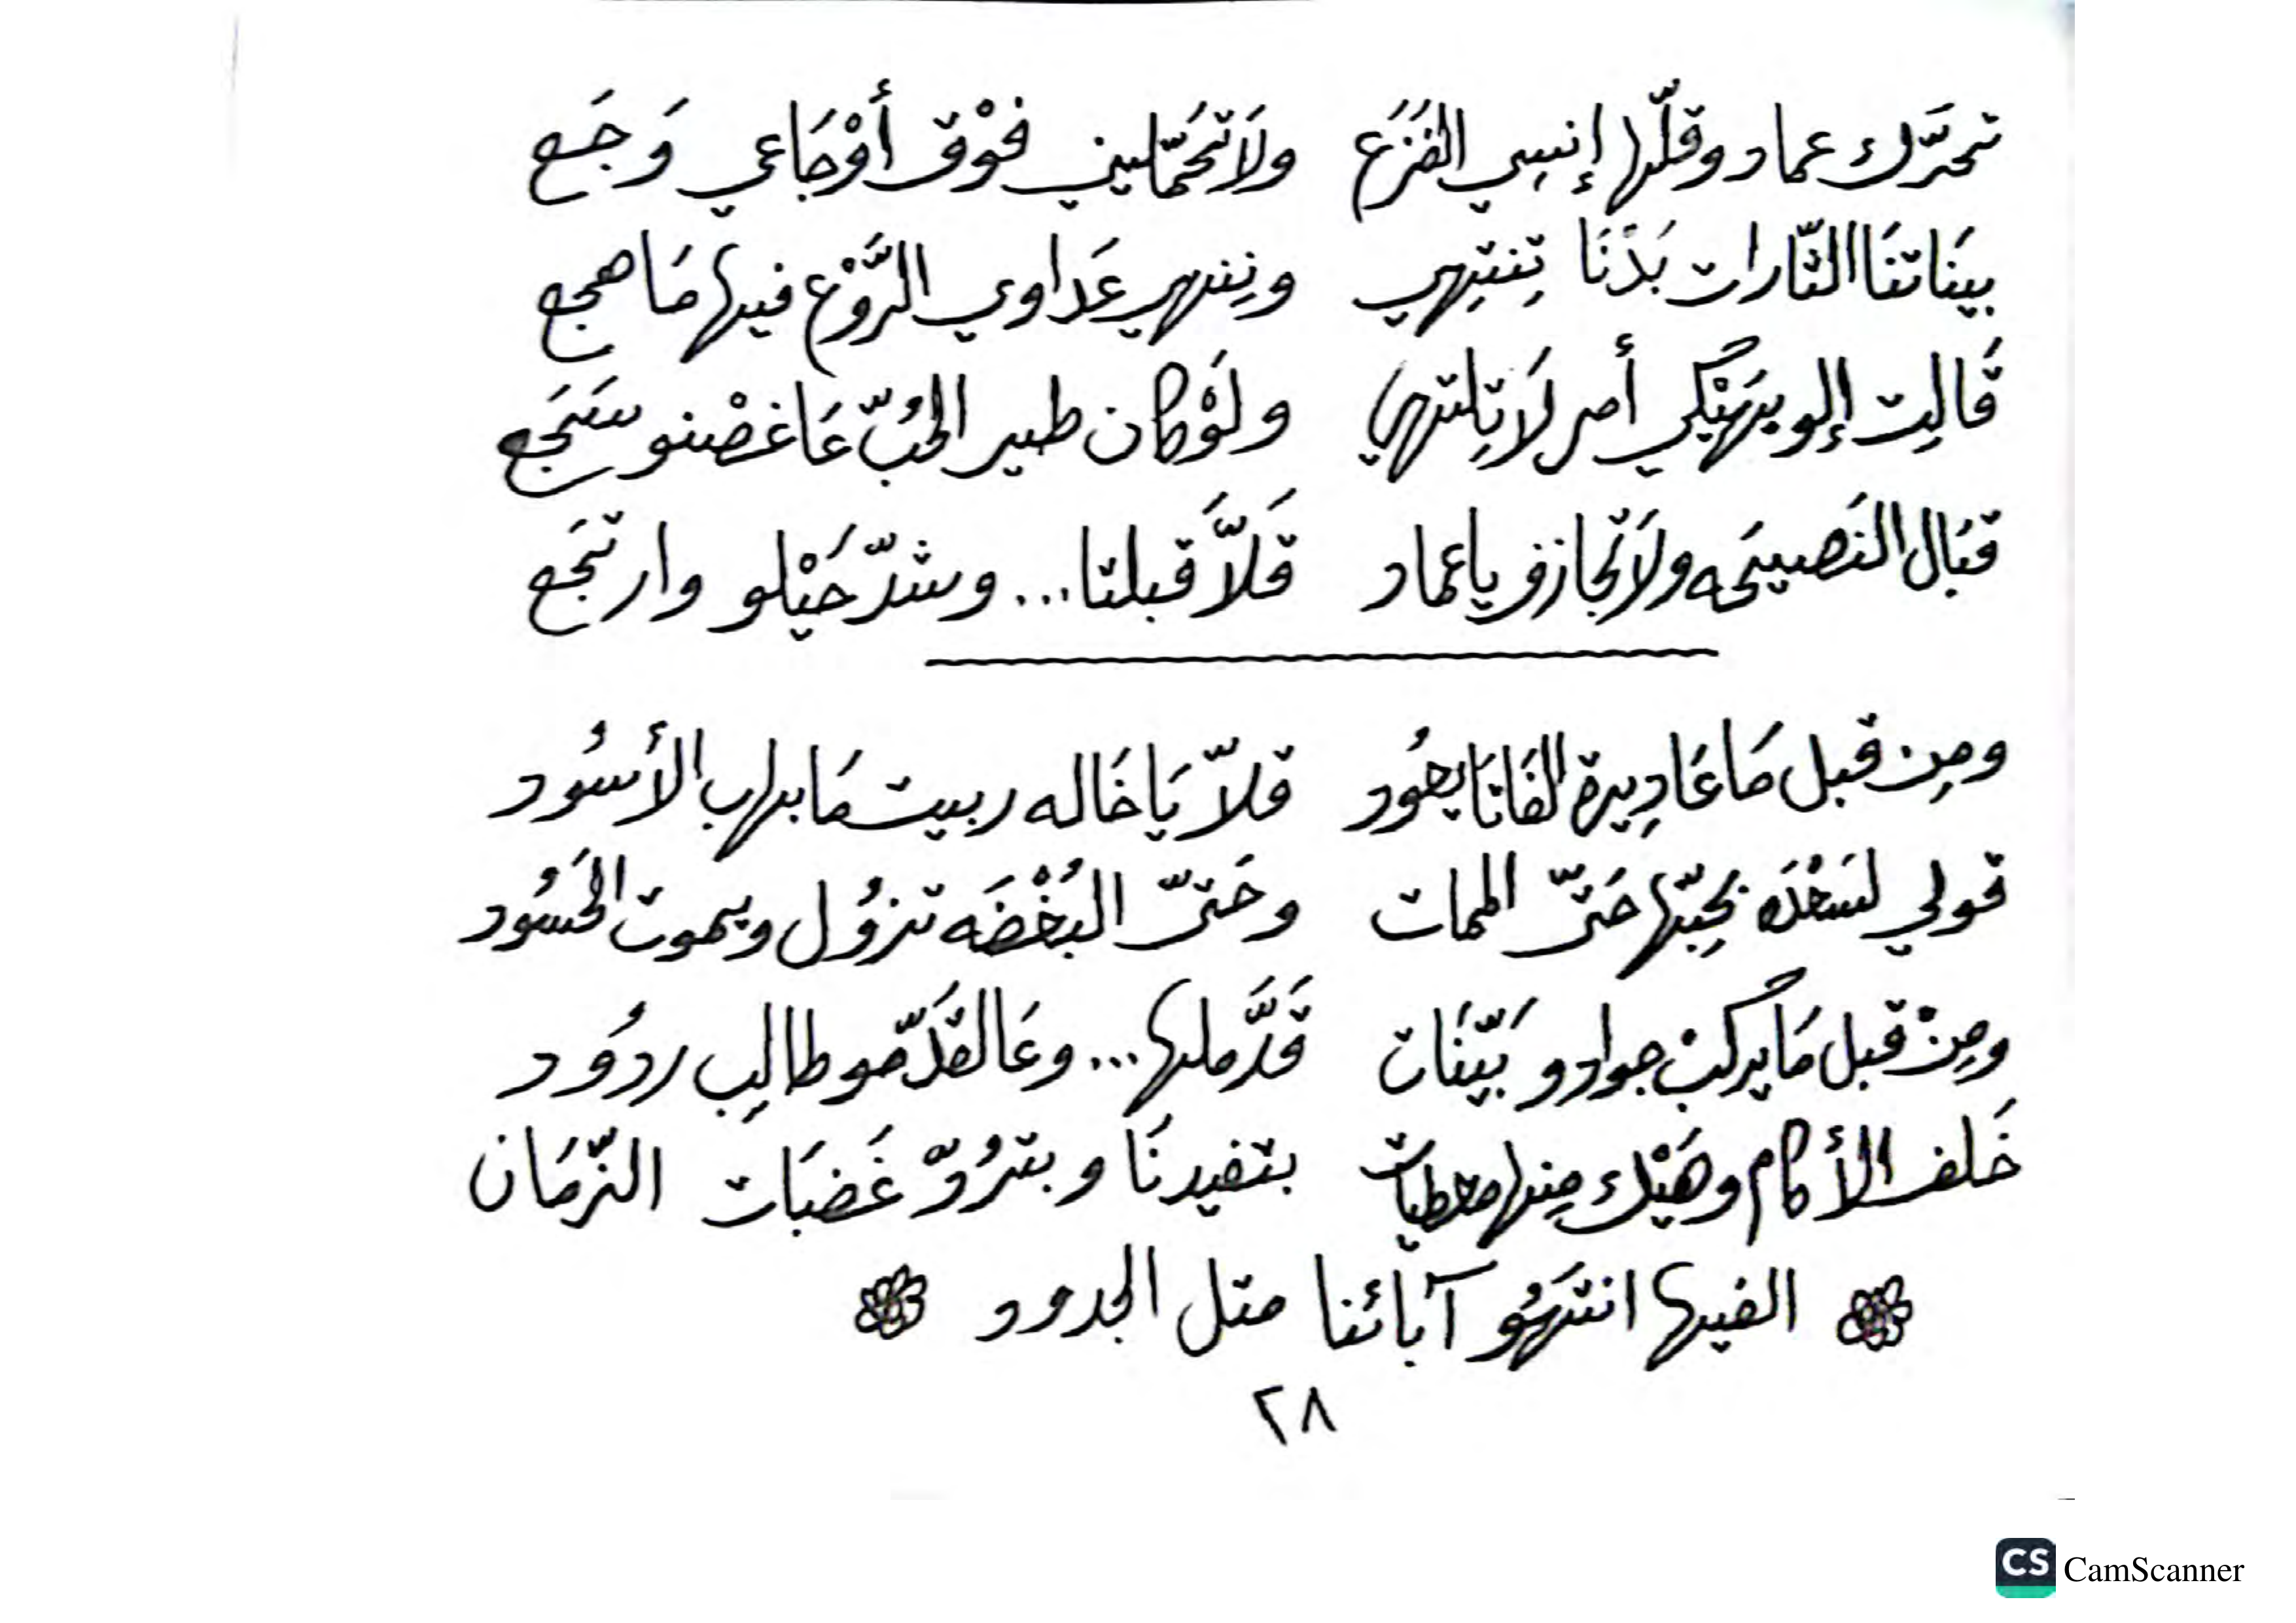 تحرَّك عماد وقلّها إنسِي الفَزَع ولاَ تحَمّليني فوْق أوْجَاعي وَجَع
بينَاتنَا التّارات بَدْنَا تِنتِهي وننهي عَداوي الرَّوْع فيها مَا هجع
قَالِت إلو بيَهَيْكي أمر لَا تِلتهي ولَوْ كان طير الحُبّ عَا غصْنو سَجَع
قبَال النَصيحَه ولاَ تجازف يا عماد قَلاَّ قَبلتا... وشدّ حَيْلو وارتجَع
ومِن قبل مَا عَادِيرة الفَانَا يعُود قلاّ يَا خَاله ربيت مَا بهاب الأسُود
قولي لسَعْدَه بحِبّها حَتىّ الممات وحَتىّ البُغْضَه تزوُل ويموت الحَسُود
ومِنْ قبل مَا يركَبْ جوادو بَيّنَات قَدَّملها... وعَا لقَدّمو طالِب ردوُد
خَلف الأكام وهَيْك مِنها معطيَات بتفيدنَا وبتردُّ غَضبَات الزّمَان
الفيها انتهَوُ آبائنا متل الجدود
٢٨
CS CamScanner